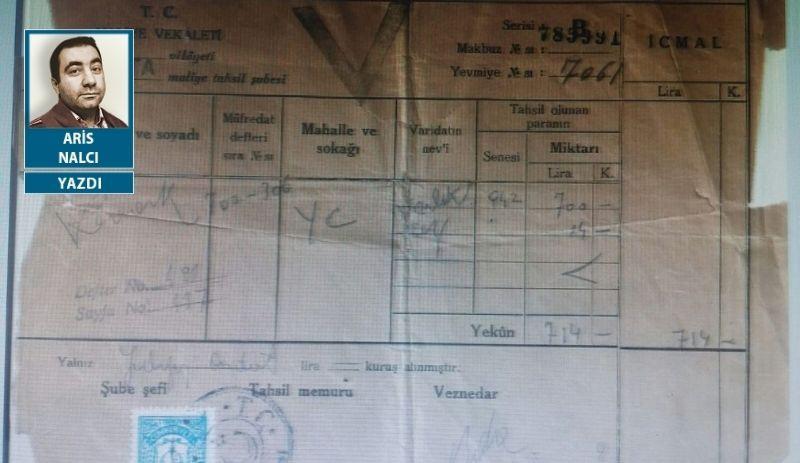 T. C.
VEKÂLETİ
vilâyeti
maliye tahsil şubesi
ARİS
NALCI
YAZDI
Serisi : B
Makbuz № sı : 785591
Yevmiye № sı : 7061
İCMAL
Lira K.
ve soyadı
Müfredat defteri sıra № sı
Mahalle ve sokağı
Varidatın nev'i
Tahsil olunan paranın
Senesi
Miktarı
Lira K.
702-306
YC
942
700 —
Defter No.
Sayfa No.
Yekûn 714 — 714 —
Yalnız lira kuruş alınmıştır.
Şube şefi Tahsil memuru Veznedar
T.C.